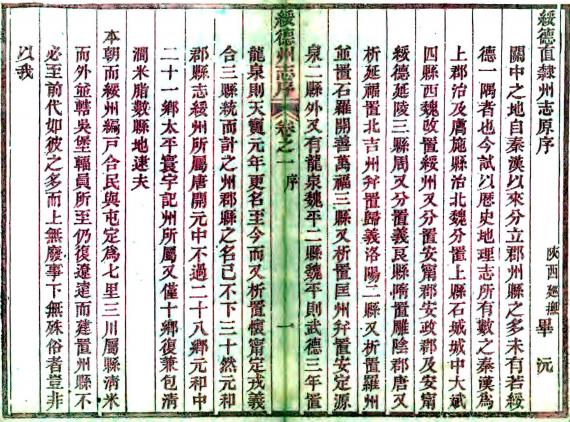 綏德直隸州志原序
陜西巡撫畢沅
關中之地自秦漢以來分立郡州縣之多未有若綏
德一隅者也今試以歷史地理志所有數之秦漢為
上郡治及膚施縣治北魏分置上縣石城城中大斌
四縣西魏改置綏州又分置安寧郡安政郡及安寧
綏德延陵三縣周又分置義良縣隋置雕陰郡唐又
析延福置北吉州并置歸義洛陽二縣又析置羅州
並置石羅開善萬福三縣又析置匡州并置安定源
泉二縣外又有龍泉魏平二縣魏平則武德三年置
綏德州志序 卷之一 序 一
龍泉則天寶元年更名至今而又析置懷甯定戎義
合三縣統而計之州郡縣之名已不下三十然元和
郡縣志綏州所屬唐開元中不過二十八鄉元和中
二十一鄉太平寰宇記州所屬又僅十鄉復兼包清
澗米脂數縣地逮夫
本朝而綏州編戶合民與屯定為七里三川屬縣清米
而外並轄吳堡輻員所至仍復遼遠而建置州縣不
必至前代如彼之多而上無廢事下無殊俗者豈非
以我